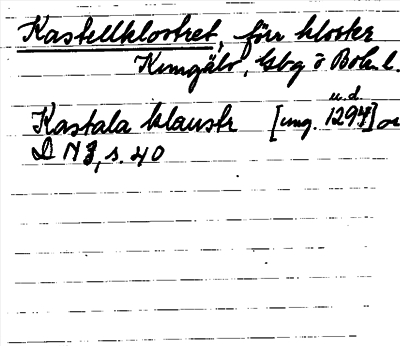 Kastellklostret, förr kloster
Kungälv, Gbg o Boh. l.
u.d.
Kastala klaustr [ung. 1297] or
DN 3, s. 40